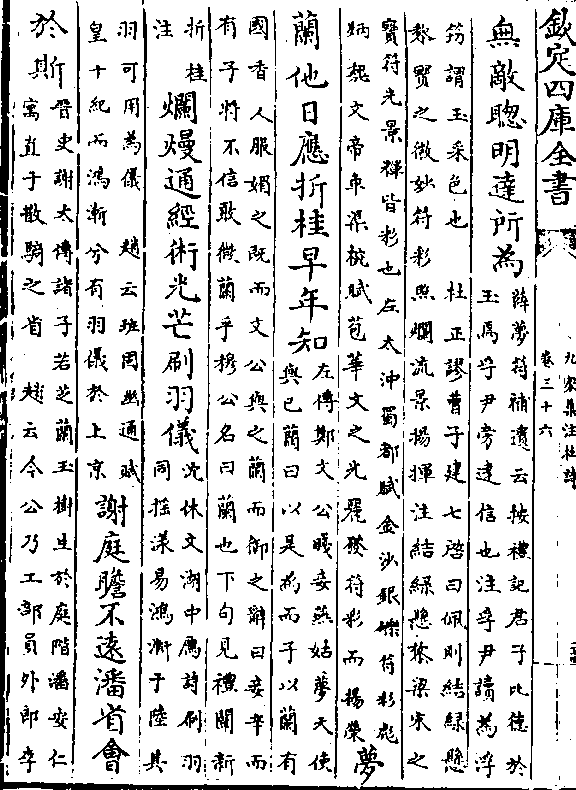 欽定四庫全書
九家集注杜詩
卷三十六
無敵聰明達所為
薛夢符補遺云按禮記君子比德於
玉焉孚尹旁達信也注孚尹讀為浮
筠謂玉采色也 杜正謬曹子建七啓曰佩則結緑懸
黎寶之微妙符彩照爛流景揚揮注結緑懸黎梁宋之
寳符光景輝皆彩也左太沖蜀都賦金沙銀礫符彩彪
炳魏文帝車渠椀賦苞華文之光麗發符彩而揚榮
夢
蘭他日應折桂早年知
左傳鄭文公賤妾燕姞夢天使
與已蘭曰以是為而子以蘭有
國香人服媚之既而文公與之蘭而御之辭曰妾辛而
有子將不信敢徵蘭乎穆公名曰蘭也下句見禮闈新
折桂
注
爛熳通經術光芒刷羽儀
沈休文湖中鴈詩刷羽
同揺漾易鴻漸于陸其
羽可用為儀 趙云班固幽通賦
皇十紀而鴻漸兮有羽儀於上京
謝庭瞻不逺潘省會
於斯
晉史謝太傅諸子若芝蘭玉樹生於庭階潘安仁
寓直于散騎之省 趙云今公乃工部員外郎辛